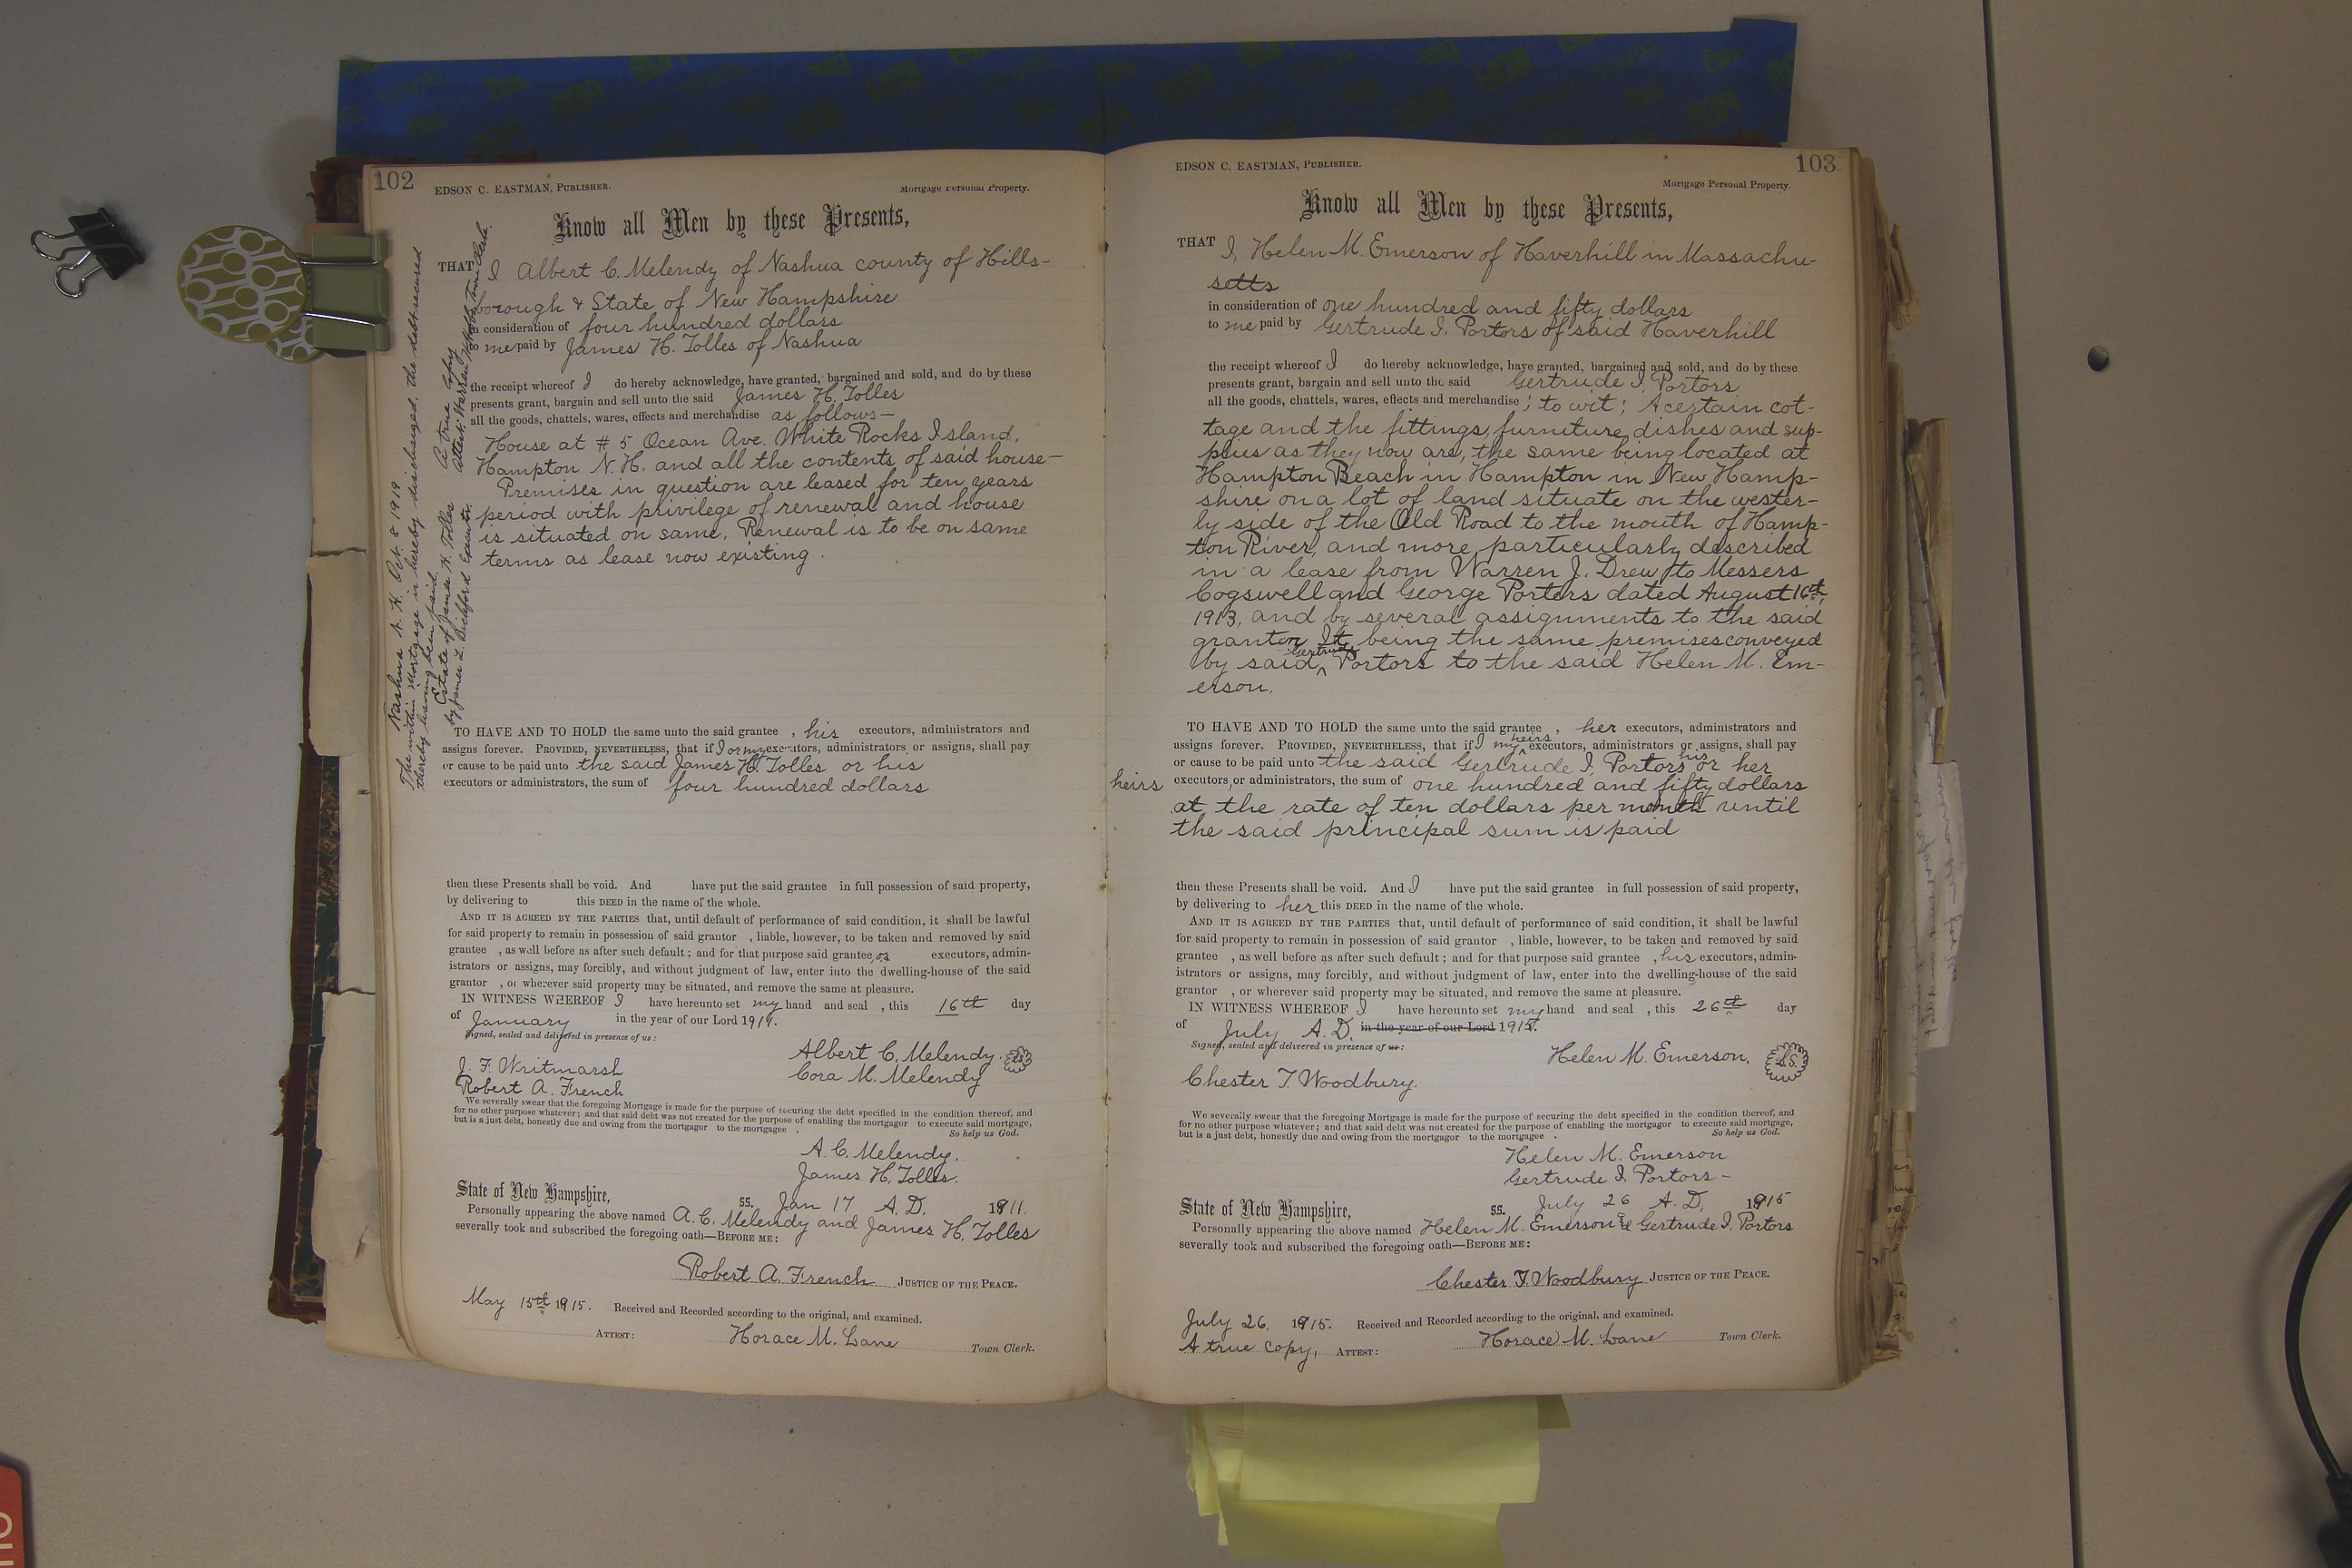 102
EDSON C. EASTMAN, PUBLISHER.
Mortgage Personal Property.
Know all Men by these Presents,
THAT I Albert C. Melendy of Nashua county of Hills-
borough & State of New Hampshire
in consideration of four hundred dollars
to me paid by James H. Tolles of Nashua
the receipt whereof I do hereby acknowledge, have granted, bargained and sold, and do by these
presents grant, bargain and sell unto the said James H. Tolles
all the goods, chattels, wares, effects and merchandise as follows—
House at # 5 Ocean Ave. White Rocks Island,
Hampton N. H. and all the contents of said house—
Premises in question are leased for ten years
period with privilege of renewal and house
is situated on same. Renewal is to be on same
terms as lease now existing.
TO HAVE AND TO HOLD the same unto the said grantee , his executors, administrators and
assigns forever. PROVIDED, NEVERTHELESS, that if I or my executors, administrators or assigns, shall pay
or cause to be paid unto the said James H. Tolles or his
executors or administrators, the sum of four hundred dollars
then these Presents shall be void. And have put the said grantee in full possession of said property,
by delivering to this DEED in the name of the whole.
AND IT IS AGREED BY THE PARTIES that, until default of performance of said condition, it shall be lawful
for said property to remain in possession of said grantor , liable, however, to be taken and removed by said
grantee , as well before as after such default; and for that purpose said grantee, or executors, admin-
istrators or assigns, may forcibly, and without judgment of law, enter into the dwelling-house of the said
grantor , or wherever said property may be situated, and remove the same at pleasure.
IN WITNESS WHEREOF I have hereunto set my hand and seal , this 16th day
of January in the year of our Lord 191
Signed, sealed and delivered in presence of us:
Albert C. Melendy. LS
J. F. Writmarsh
Cora M. Melendy
Robert A. French
We severally swear that the foregoing Mortgage is made for the purpose of securing the debt specified in the condition thereof, and
for no other purpose whatever; and that said debt was not created for the purpose of enabling the mortgagor to execute said mortgage,
but is a just debt, honestly due and owing from the mortgagor to the mortgagee .
So help us God.
A. C. Melendy.
James H. Tolles.
State of New Hampshire,
ss. Jan 17 A. D. 1911.
Personally appearing the above named A. C. Melendy and James H. Tolles
severally took and subscribed the foregoing oath—BEFORE ME:
Robert A. French JUSTICE OF THE PEACE.
May 15th 1915. Received and Recorded according to the original, and examined.
ATTEST: Horace M. Lane Town Clerk.
Nashua N. H. Oct. 8 1919
The within Mortgage is hereby discharged, the debt secured
thereby having been paid.
Estate of James H. Tolles
by James L. Bickford Executor.
A true copy
Attest: Warren Hobbs Town Clerk.
103
EDSON C. EASTMAN, PUBLISHER.
Mortgage Personal Property.
Know all Men by these Presents,
THAT I, Helen M. Emerson of Haverhill in Massachu-
setts
in consideration of one hundred and fifty dollars
to me paid by Gertrude I. Portors of said Haverhill
the receipt whereof I do hereby acknowledge, have granted, bargained and sold, and do by these
presents grant, bargain and sell unto the said Gertrude I. Portors
all the goods, chattels, wares, effects and merchandise ; to wit; A certain cot-
tage and the fittings, furniture, dishes and sup-
plies as they now are, the same being located at
Hampton Beach in Hampton in New Hamp-
shire on a lot of land situate on the wester-
ly side of the Old Road to the mouth of Hamp-
ton River, and more particularly described
in a lease from Warren J. Drew to Messers
Cogswell and George Porters dated August 16th,
1913, and by several assignments to the said
grantor It being the same premises conveyed
by said Gertrude Portors to the said Helen M. Em-
erson.
TO HAVE AND TO HOLD the same unto the said grantee , her executors, administrators and
assigns forever. PROVIDED, NEVERTHELESS, that if I my heirs executors, administrators or assigns, shall pay
or cause to be paid unto the said Gertrude I. Portors his or her
heirs executors or administrators, the sum of one hundred and fifty dollars
at the rate of ten dollars per month until
the said principal sum is paid
then these Presents shall be void. And I have put the said grantee in full possession of said property,
by delivering to her this DEED in the name of the whole.
AND IT IS AGREED BY THE PARTIES that, until default of performance of said condition, it shall be lawful
for said property to remain in possession of said grantor , liable, however, to be taken and removed by said
grantee , as well before as after such default; and for that purpose said grantee , his executors, admin-
istrators or assigns, may forcibly, and without judgment of law, enter into the dwelling-house of the said
grantor , or wherever said property may be situated, and remove the same at pleasure.
IN WITNESS WHEREOF I have hereunto set my hand and seal , this 26th day
of July A. D. in the year of our Lord 1915.
Signed, sealed and delivered in presence of us:
Helen M. Emerson. L.S.
Chester T. Woodbury.
We severally swear that the foregoing Mortgage is made for the purpose of securing the debt specified in the condition thereof, and
for no other purpose whatever; and that said debt was not created for the purpose of enabling the mortgagor to execute said mortgage,
but is a just debt, honestly due and owing from the mortgagor to the mortgagee .
So help us God.
Helen M. Emerson
Gertrude I. Portors—
State of New Hampshire,
ss. July 26 A. D. 1915
Personally appearing the above named Helen M. Emerson & Gertrude I. Portors
severally took and subscribed the foregoing oath—BEFORE ME:
Chester T. Woodbury JUSTICE OF THE PEACE.
July 26, 1915. Received and Recorded according to the original, and examined.
A true copy, ATTEST: Horace M. Lane Town Clerk.